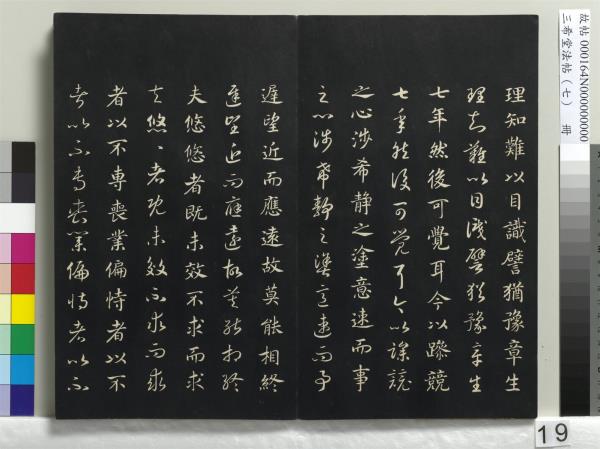 故帖 000164N000000000
三希堂法帖（七） 冊
理知難以目識譬猶豫章生
理知難以目識譬猶豫章生
七年然後可覺耳今以躁競
七年然後可覺耳今以躁競
之心涉希静之塗意速而事
之心涉希静之塗意速而事
遲望近而應遠故莫能相終
遲望近而應遠故莫能相終
夫悠悠者既未效不求而求
夫悠〻者既未效不求而求
者以不専喪業偏恃者以不
者以不専喪業偏恃者以不
19